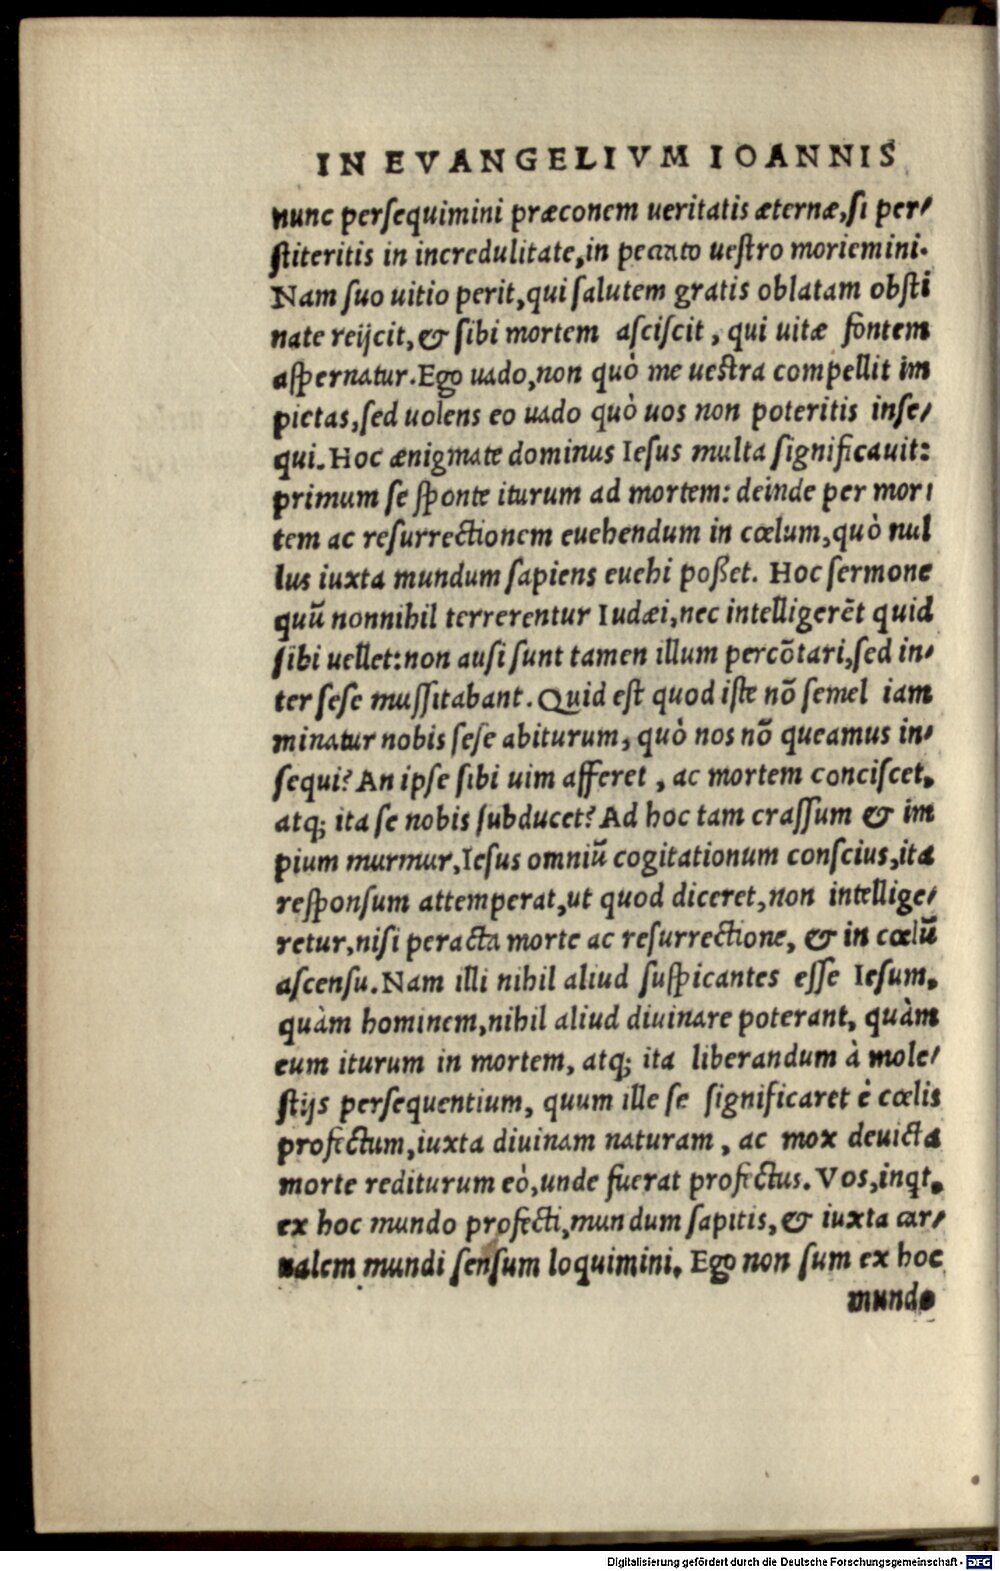 IN EVANGELIVM IOANNIS
nunc persequimini præconem ueritatis æternæ, si per-
stiteritis in incredulitate, in peccato uestro moriemini.
Nam suo uitio perit, qui salutem gratis oblatam obsti
nate reijcit, & sibi mortem asciscit, qui uitæ fontem
aspernatur. Ego uado, non quò me uestra compellit im
pietas, sed uolens eo uado quò uos non poteritis inse-
qui. Hoc ænigmate dominus Iesus multa significauit:
primum se sponte iturum ad mortem: deinde per mor-
tem ac resurrectionem euehendum in cœlum, quò nul
lus iuxta mundum sapiens euehi poßet. Hoc sermone
quū nonnihil terrerentur Iudæi, nec intelligerēt quid
sibi uellet: non ausi sunt tamen illum percōtari, sed in-
ter sese mussitabant. Quid est quod iste nō semel iam
minatur nobis sese abiturum, quò nos nō queamus in-
sequi? An ipse sibi uim afferet, ac mortem consciscet,
atq; ita se nobis subducet? Ad hoc tam crassum & im
pium murmur, Iesus omniū cogitationum conscius, ita
responsum attemperat, ut quod diceret, non intellige-
retur, nisi peracta morte ac resurrectione, & in cœlū
ascensu. Nam illi nihil aliud suspicantes esse Iesum,
quàm hominem, nihil aliud diuinare poterant, quàm
eum iturum in mortem, atq; ita liberandum à mole-
stijs persequentium, quum ille se significaret è cœlis
profectum, iuxta diuinam naturam, ac mox deuicta
morte rediturum eò, unde fuerat profectus. Vos, inqt,
ex hoc mundo profecti, mundum sapitis, & iuxta car-
nalem mundi sensum loquimini. Ego non sum ex hoc
mundo
Digitalisierung gefördert durch die Deutsche Forschungsgemeinschaft - DFG